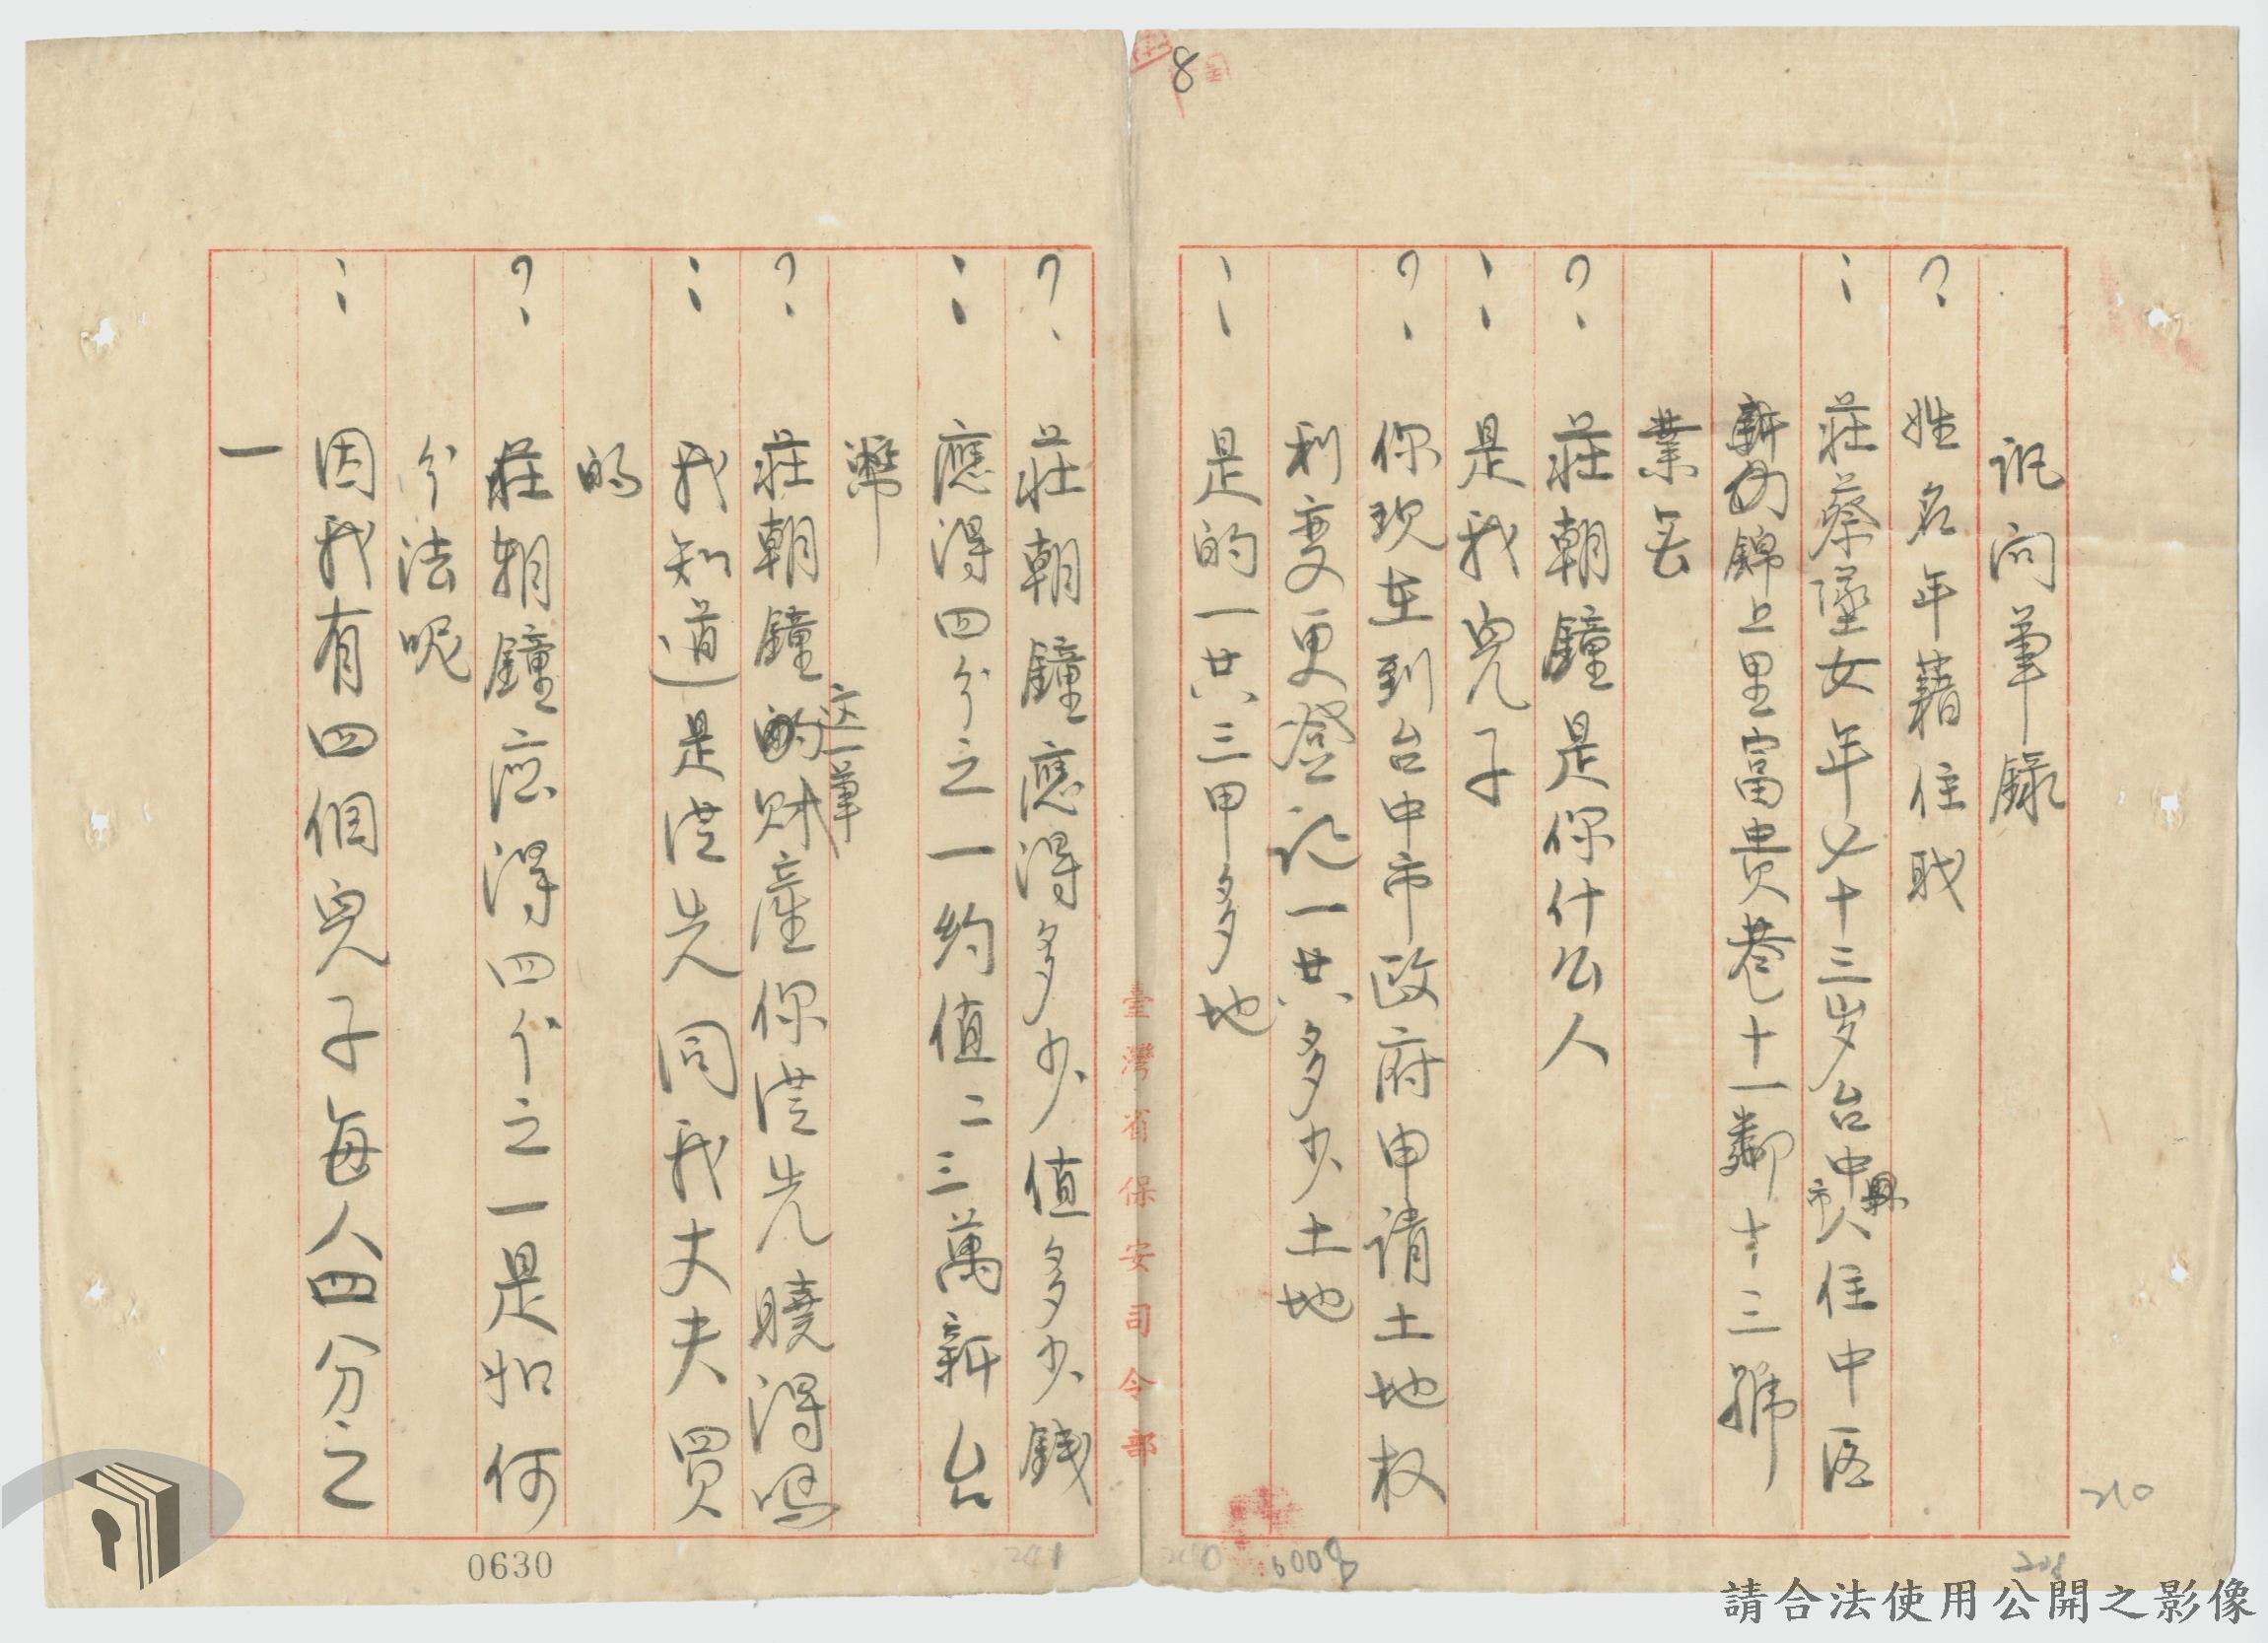 8
訊问筆錄
？姓名年藉住职
：莊蔡墜女年七十三岁台中縣市人住中區
錦上里富貴巷十一鄰十三號
業无
？莊朝鐘是你什么人
：是我兒子
？你現在到台中市政府申请土地权
利变更登记一共多少土地
：是的一共三甲多地
臺灣省保安司令部
？莊朝鐘應得多少值多少錢
：應得四分之一約值二三萬新台
幣
？莊朝鐘這一筆財產你從先曉得嗎
：我知道是從先同我丈夫買
的
？莊朝鐘应得四分之一是如何
分法呢
：因我有四個兒子每人四分之
一
210
0008
0630
請合法使用公開之影像